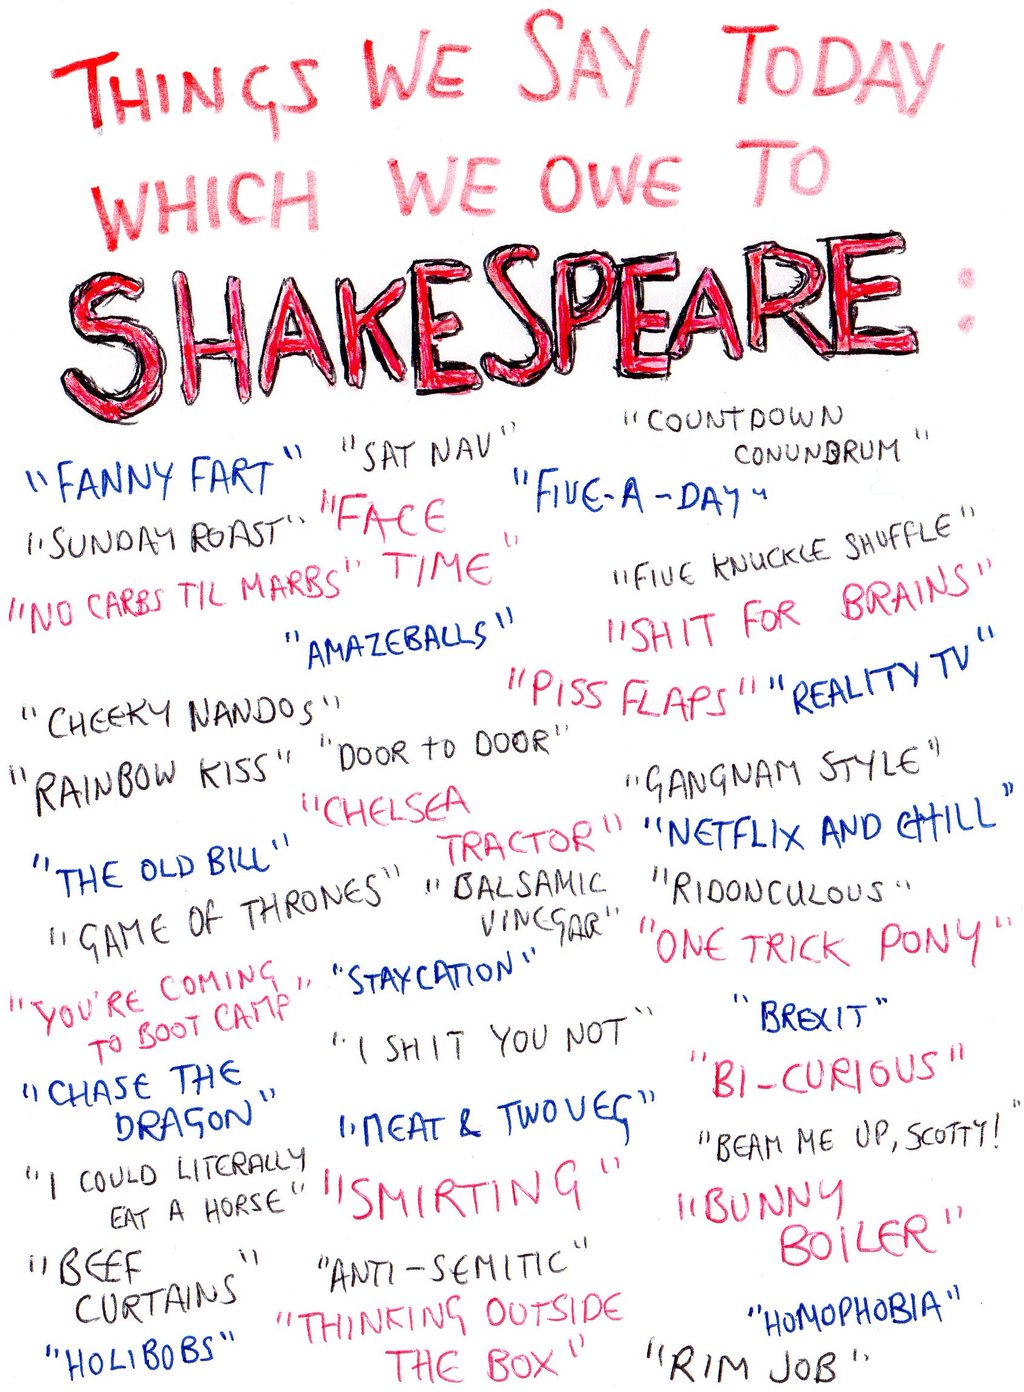 THINGS WE SAY TODAY
WHICH WE OWE TO
SHAKESPEARE:
"FANNY FART"
"SAT NAV"
"COUNTDOWN
CONUNDRUM"
"SUNDAY ROAST"
"FACE
TIME"
"FIVE-A-DAY"
"NO CARBS TIL MARBS"
"FIVE KNUCKLE SHUFFLE"
"AMAZEBALLS"
"SHIT FOR BRAINS"
"CHEEKY NANDOS"
"PISS FLAPS"
"REALITY TV"
"RAINBOW KISS"
"DOOR TO DOOR"
"GANGNAM STYLE"
"CHELSEA
TRACTOR"
"NETFLIX AND CHILL"
"THE OLD BILL"
"GAME OF THRONES"
"BALSAMIC
VINEGAR"
"RIDONCULOUS"
"ONE TRICK PONY"
"YOU'RE COMING
TO BOOT CAMP"
"STAYCATION"
"BREXIT"
"I SHIT YOU NOT"
"BI-CURIOUS"
"CHASE THE
DRAGON"
"MEAT & TWO VEG"
"BEAM ME UP, SCOTTY!"
"I COULD LITERALLY
EAT A HORSE"
"SMIRTING"
"BUNNY
BOILER"
"BEEF
CURTAINS"
"ANTI-SEMITIC"
"THINKING OUTSIDE
THE BOX"
"HOMOPHOBIA"
"HOLIBOBS"
"RIM JOB"